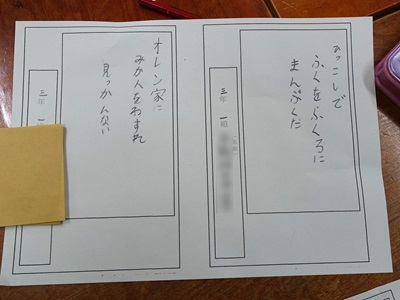 おっこしで
ふくをふくろに
まんぷくだ
三年 一組
オレン家に
みかんをわすれ
見っかんない
三年 一